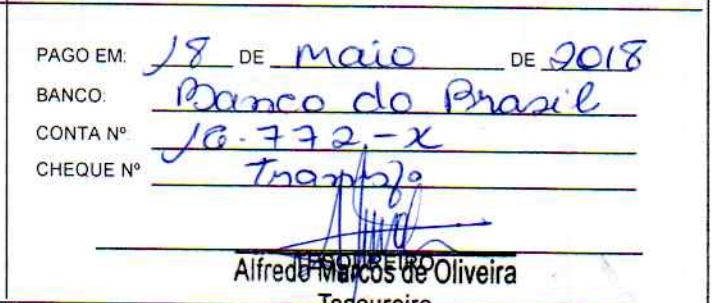 PAGO EM: 18 DE maio DE 2018
BANCO: Banco do Brasil
CONTA Nº 16.772-X
CHEQUE Nº Transfº
TESOUREIRO
Alfredo Marcos de Oliveira
Tesoureiro